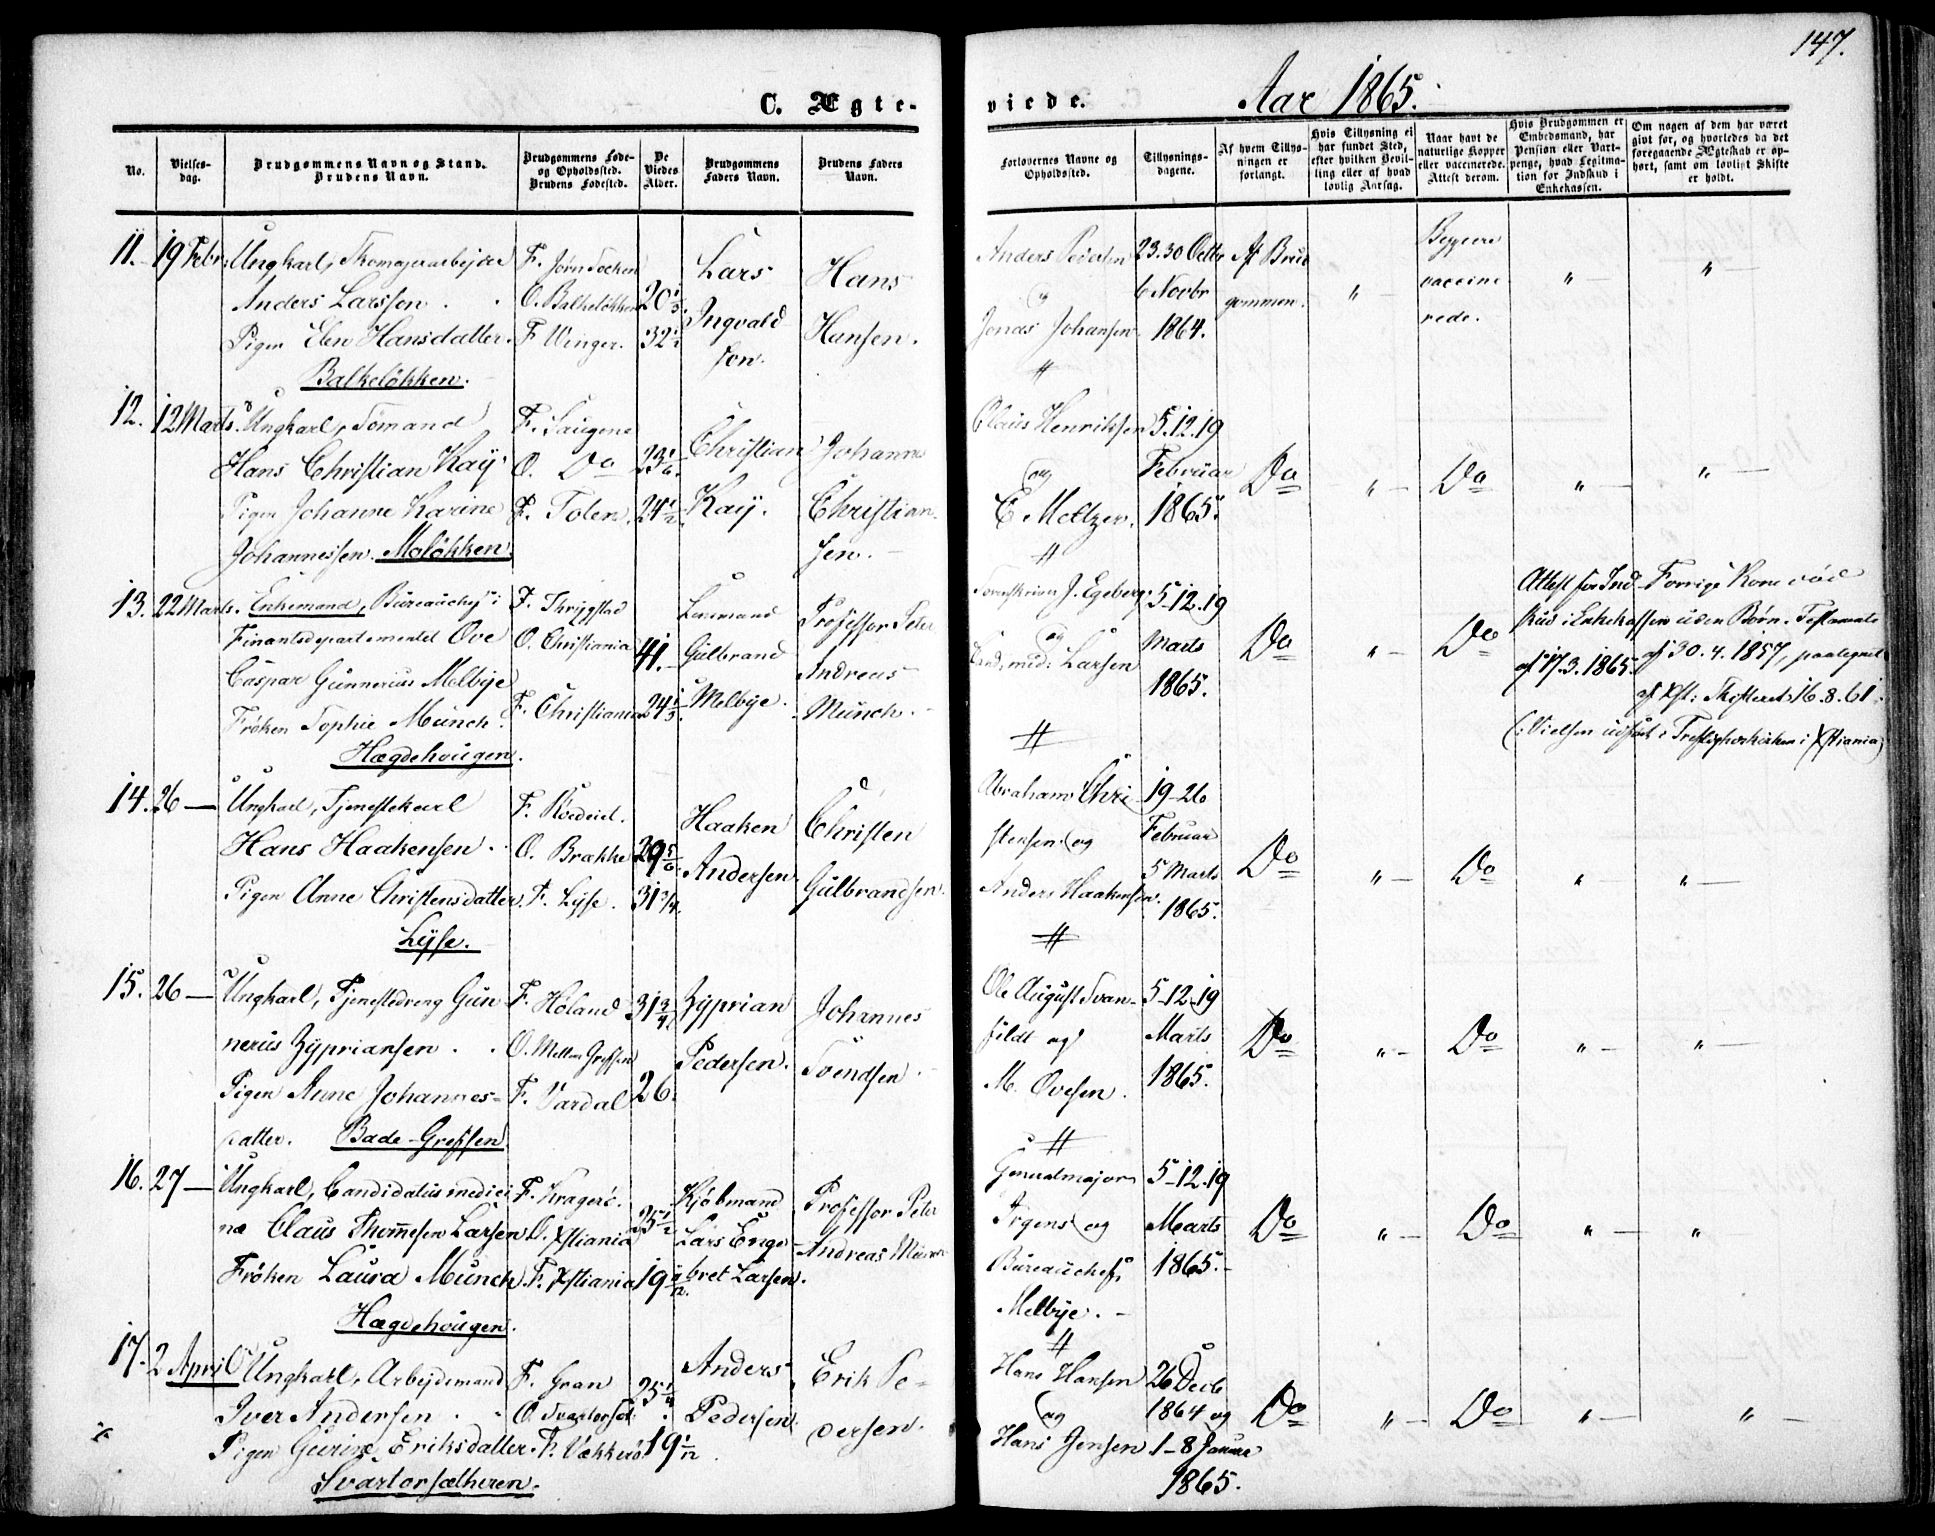 147.
C. Ægte-
viede.
Aar 1865.
No.
Vielses-
dag.
Brudgommens Navn og Stand.
Brudens Navn.
Brudgommens Føde-
og Opholdssted.
Brudens Fødested.
De
Viedes
Alder.
Brudgommens
Faders Navn.
Brudens Faders
Navn.
Forlovernes Navne og
Opholdssted.
Tillysnings-
dagene.
Af hvem Tillys-
ningen er
forlangt.
Hvis Tillysning ei
har fundet Sted,
efter hvilken Bevil-
ling eller af hvad
lovlig Aarsag.
Naar havt de
naturlige Kopper
eller vaccinerede.
Attest derom.
Hvis Brudgommen er
Embedsmand, har
Pension eller Vart-
penge, hvad Legitima-
tion for Indskud i
Enkekassen.
Om nogen af dem har været
gift før, og hvorledes da det
foregaaende Ægteskab er op-
hørt, samt om lovligt Skifte
er holdt.
11. 19 Febr.
Ungkarl, Skomagerarbejder
Anders Larssen.
Pigen Elen Hansdatter.
Balkeløkken.
F.
O. Balkeløkken
F. Vinger.
20 1/3.
32 1/2
Lars
Ingvald
sen.
Hans
Hansen.
Anders Pedersen
og
Jonas Johansen.
23. 30 Octbr
6 Novbr
1864.
Af Brud
gommen.
"
Begge ere
vaccine
rede.
"
"
12. 12 Marts.
Ungkarl, Sømand
Hans Christian Kay
Pigen Johanne Karine
Johannessen. Moløkken.
F. Laugene
O. Do
F. Toten.
23 1/6.
24 1/2
Christian
Kay.
Johannes
Christian-
sen.
Claus Henriksen
og
E. Meltzer.
5. 12. 19
Februar
1865.
Do
"
Do
"
"
13. 22 Marts.
Enkemand, Bureauchef i
Finantsdepartementet Ove
Caspar Gunnerius Melbye
Frøken Sophie Münch.
Hægdehougen.
F. Skrygstad
O. Christiania
F. Christiania
41.
24 1/3.
Lensmand
Gulbrand
Melbye.
Professor Peter
Andreas
Münch.
Sorenskriver J. Egeberg
og
Cand. med. Larsen
5-12. 19
Marts
1865.
Do
"
Do
Attest for Ind-
skud i Enkekassen
af 17. 3. 1865.
Forrige Kone død
uden Børn. Testamente
af 30. 4. 1857, paategnet
af Skifteret 16. 8. 61.
(: Vielsen udført i Trefoldighedskirken i Xstiania)
14. 26 —
Ungkarl, Tjenestekarl
Hans Haakensen.
Pigen Anne Christensdatter.
Lysje.
F. Rødeiet.
O. Brække
F. Lyse.
29 5/6.
31 3/4.
Haaken
Andersen.
Christen
Gulbrandsen.
Abraham Chri
stensen og
Anders Haakensen.
19-26
Februar
5 Marts
1865.
Do
"
Do
"
"
15. 26 —
Ungkarl, Tjenestedreng Gun
nerius Zypriansen.
Pigen Anne Johannes-
datter. Bade-Grefsen.
F. Høland
O. Mellem Grefsen
F. Vardal
31 3/4.
26.
Zyprian
Pedersen.
Johannes
Svendsen.
Ole August Svan-
fildt og
M. Ovesen.
5-12-19
Marts
1865.
Do
"
Do
"
"
16. 27 —
Ungkarl, Candidatus medici
næ Claus Thommesen Larsen
Frøken Laura Münch.
Hægdehougen.
F. Kragerø.
O. Xstiania
F. Xstiania
25 1/2
19 11/12.
Kjøbmand
Lars Enge
bret Larsen.
Professor Peter
Andreas Münch
Generalmajor
Irgens og
Bureauchef
Melbye.
5-12. 19
Marts
1865.
Do
"
Do
"
"
17. 2 April
Ungkarl, Arbejdsmand
Iver Andersen.
Pigen Gurine Eriksdatter.
Svartorsætheren.
F. Gran
O. Svartorset.
F. Vækkerø
25 1/4.
19 1/12
Anders
Pedersen.
Erik Pe-
dersen.
Hans Hansen
og
Hans Jensen
26 Decb
1864 og
1-8 Januar
1865.
Do
"
Do
"
"